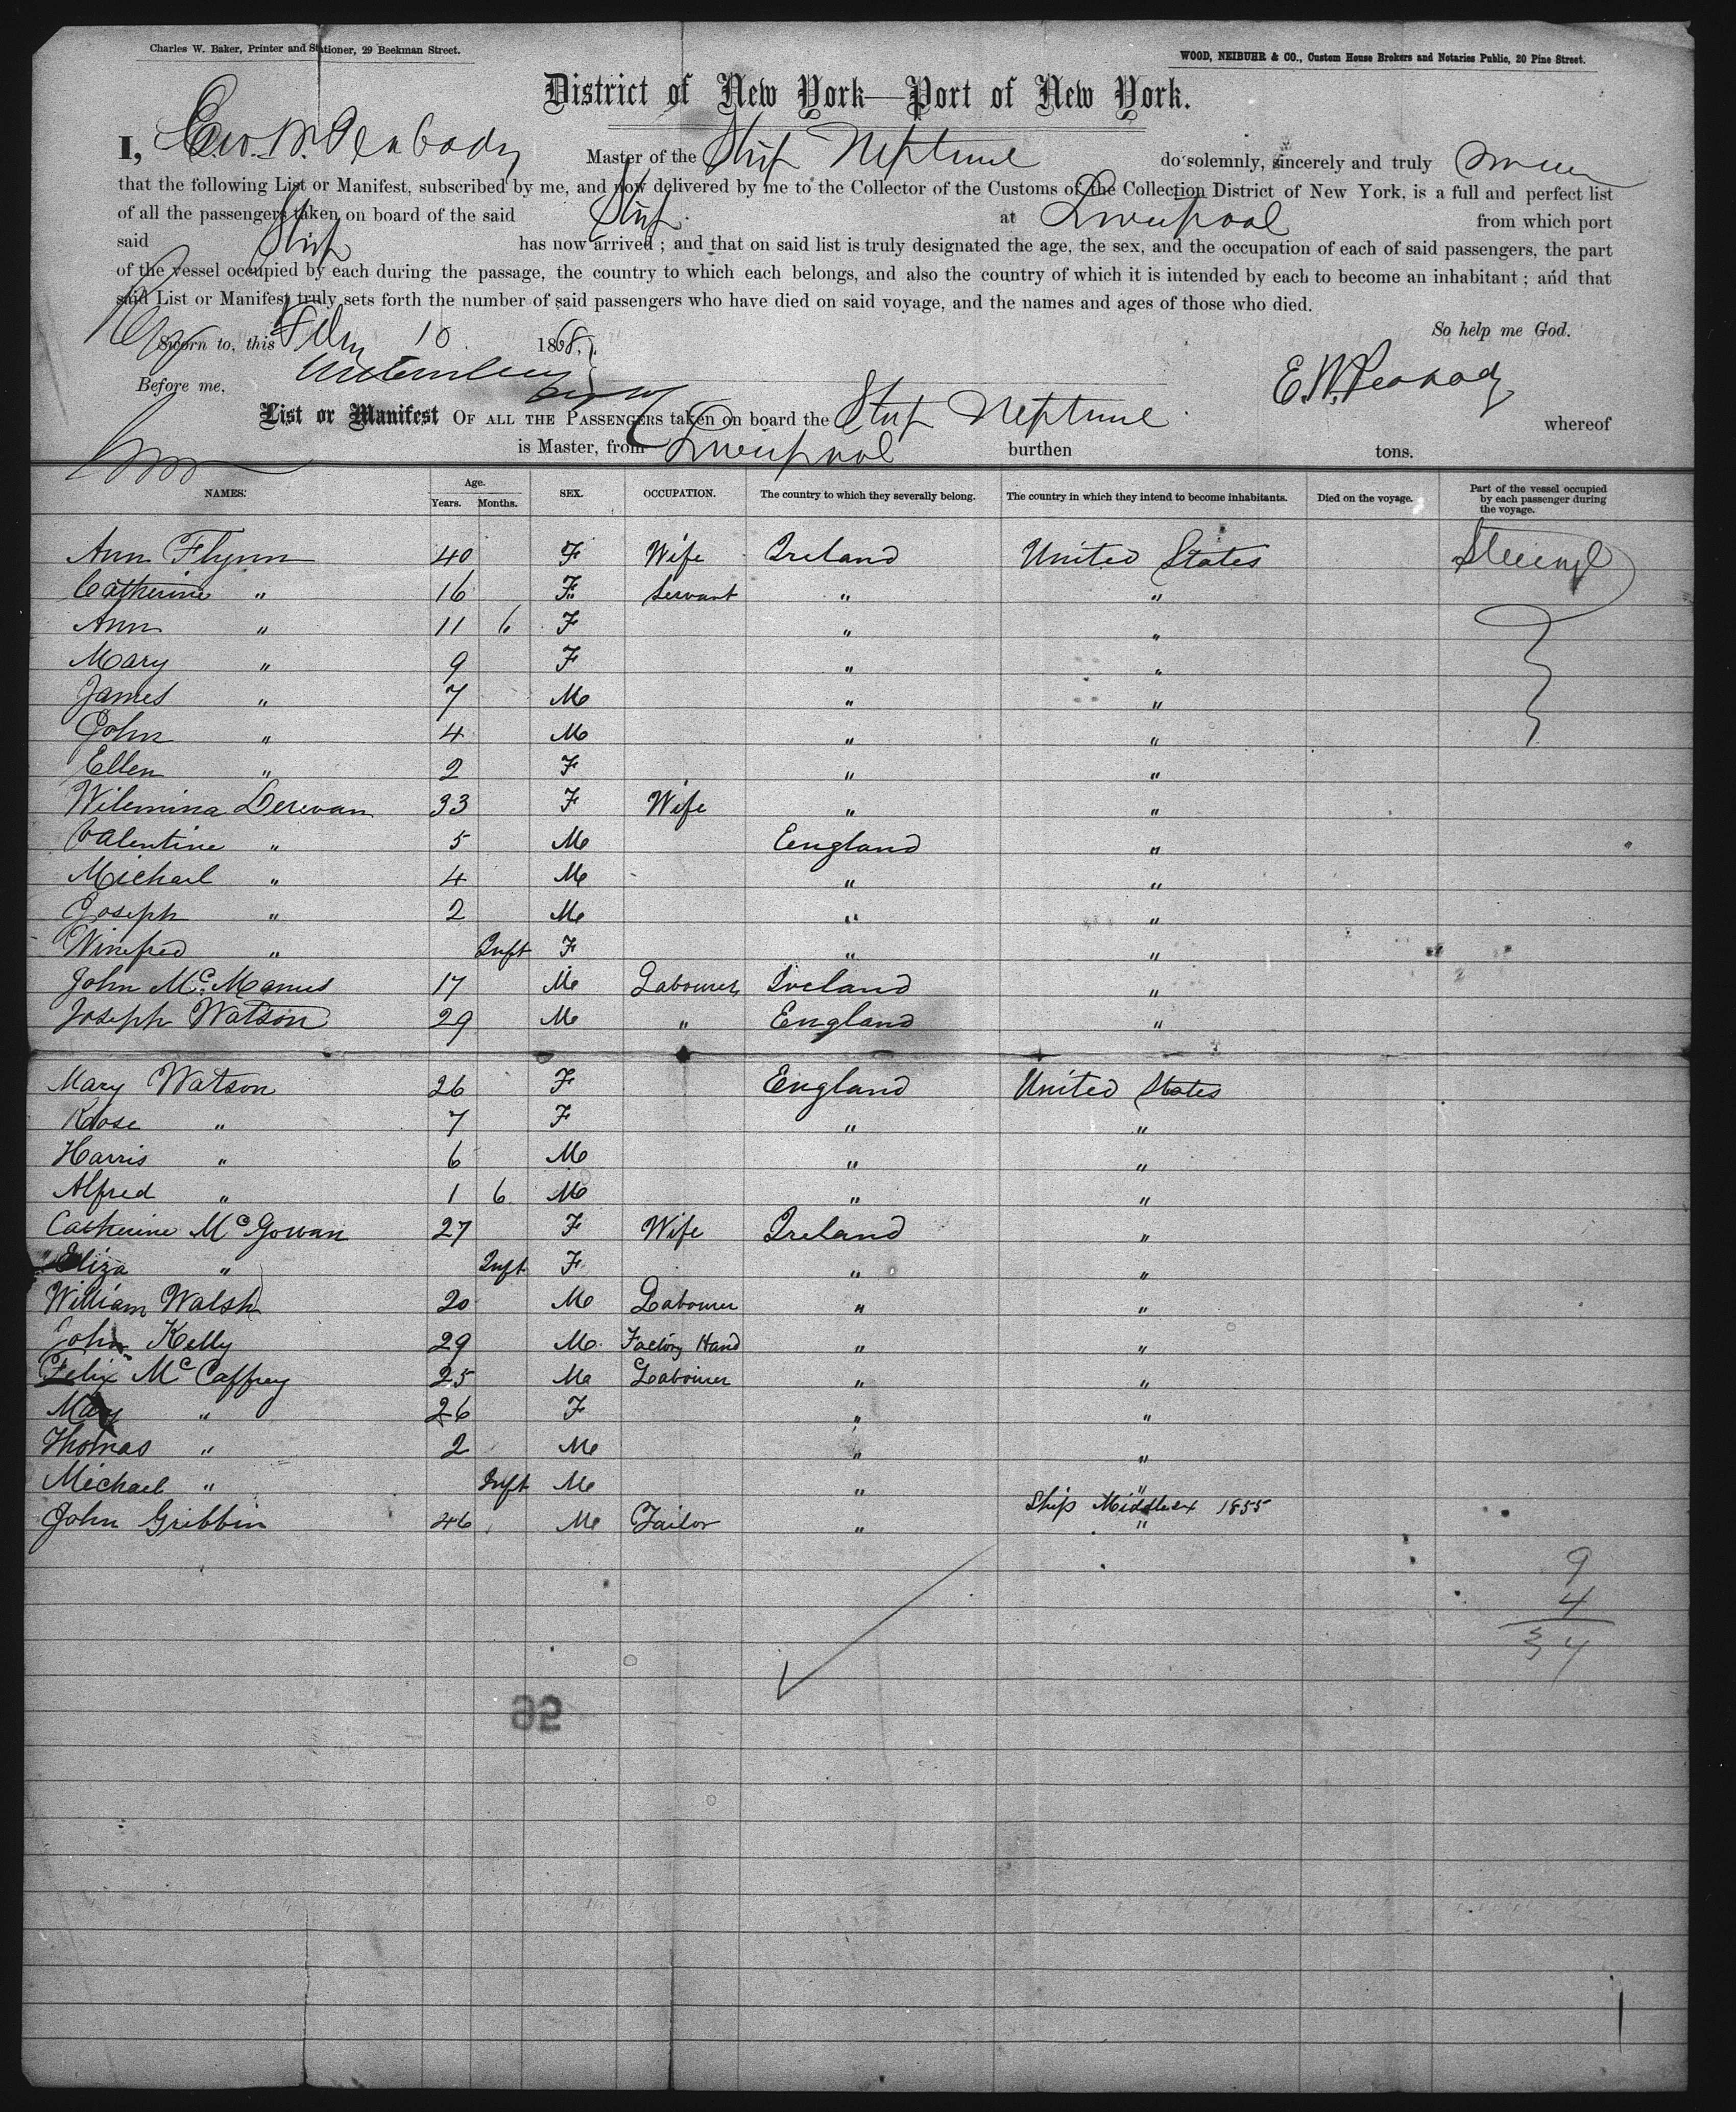 Charles W. Baker, Printer and Stationer, 29 Beekman Street.
WOOD, NEIBUHR & CO., Custom House Brokers and Notaries Public, 20 Pine Street.
District of New York—Port of New York.
I, Peabody Master of the Ship Neptune do solemnly, sincerely and truly swear
that the following List or Manifest, subscribed by me, and now delivered by me to the Collector of the Customs of the Collection District of New York, is a full and perfect list
of all the passengers taken on board of the said Ship at Liverpool from which port
said Ship has now arrived ; and that on said list is truly designated the age, the sex, and the occupation of each of said passengers, the part
of the vessel occupied by each during the passage, the country to which each belongs, and also the country of which it is intended by each to become an inhabitant ; and that
said List or Manifest truly sets forth the number of said passengers who have died on said voyage, and the names and ages of those who died.
So help me God.
Sworn to, this Feby 10 1868.
Before me, E. W. Peabody
List or Manifest OF ALL THE PASSENGERS taken on board the Ship Neptune whereof
is Master, from Liverpool burthen tons.
NAMES. Age. Years. Months. SEX. OCCUPATION. The country to which they severally belong. The country in which they intend to become inhabitants. Died on the voyage. Part of the vessel occupied by each passenger during the voyage.
Ann Flynn 40 F Wife Ireland United States Steerage
Catherine " 16 F Servant " "
Ann " 11 6 F " "
Mary " 9 F " "
James " 7 M " "
John " 4 M " "
Ellen " 2 F " "
Wilemina Derevan 33 F Wife " "
Valentine " 5 M England "
Michael " 4 M " "
Joseph " 2 M " "
Winefred " Inft F " "
John McManus 17 M Labourer Ireland "
Joseph Watson 29 M " England "
Mary Watson 26 F England United States
Rose " 7 F " "
Harris " 6 M " "
Alfred " 1 6 M " "
Catherine McGowan 27 F Wife Ireland "
Eliza " Inft F " "
William Walsh 20 M Labourer " "
John Kelly 29 M Factory Hand " "
Felix McCaffrey 25 M Labourer " "
Mary " 26 F " "
Thomas " 2 M " "
Michael " Inft M " "
Ship Middlesex 1855
John Gribbin 46 M Tailor " "
9
4
34
95